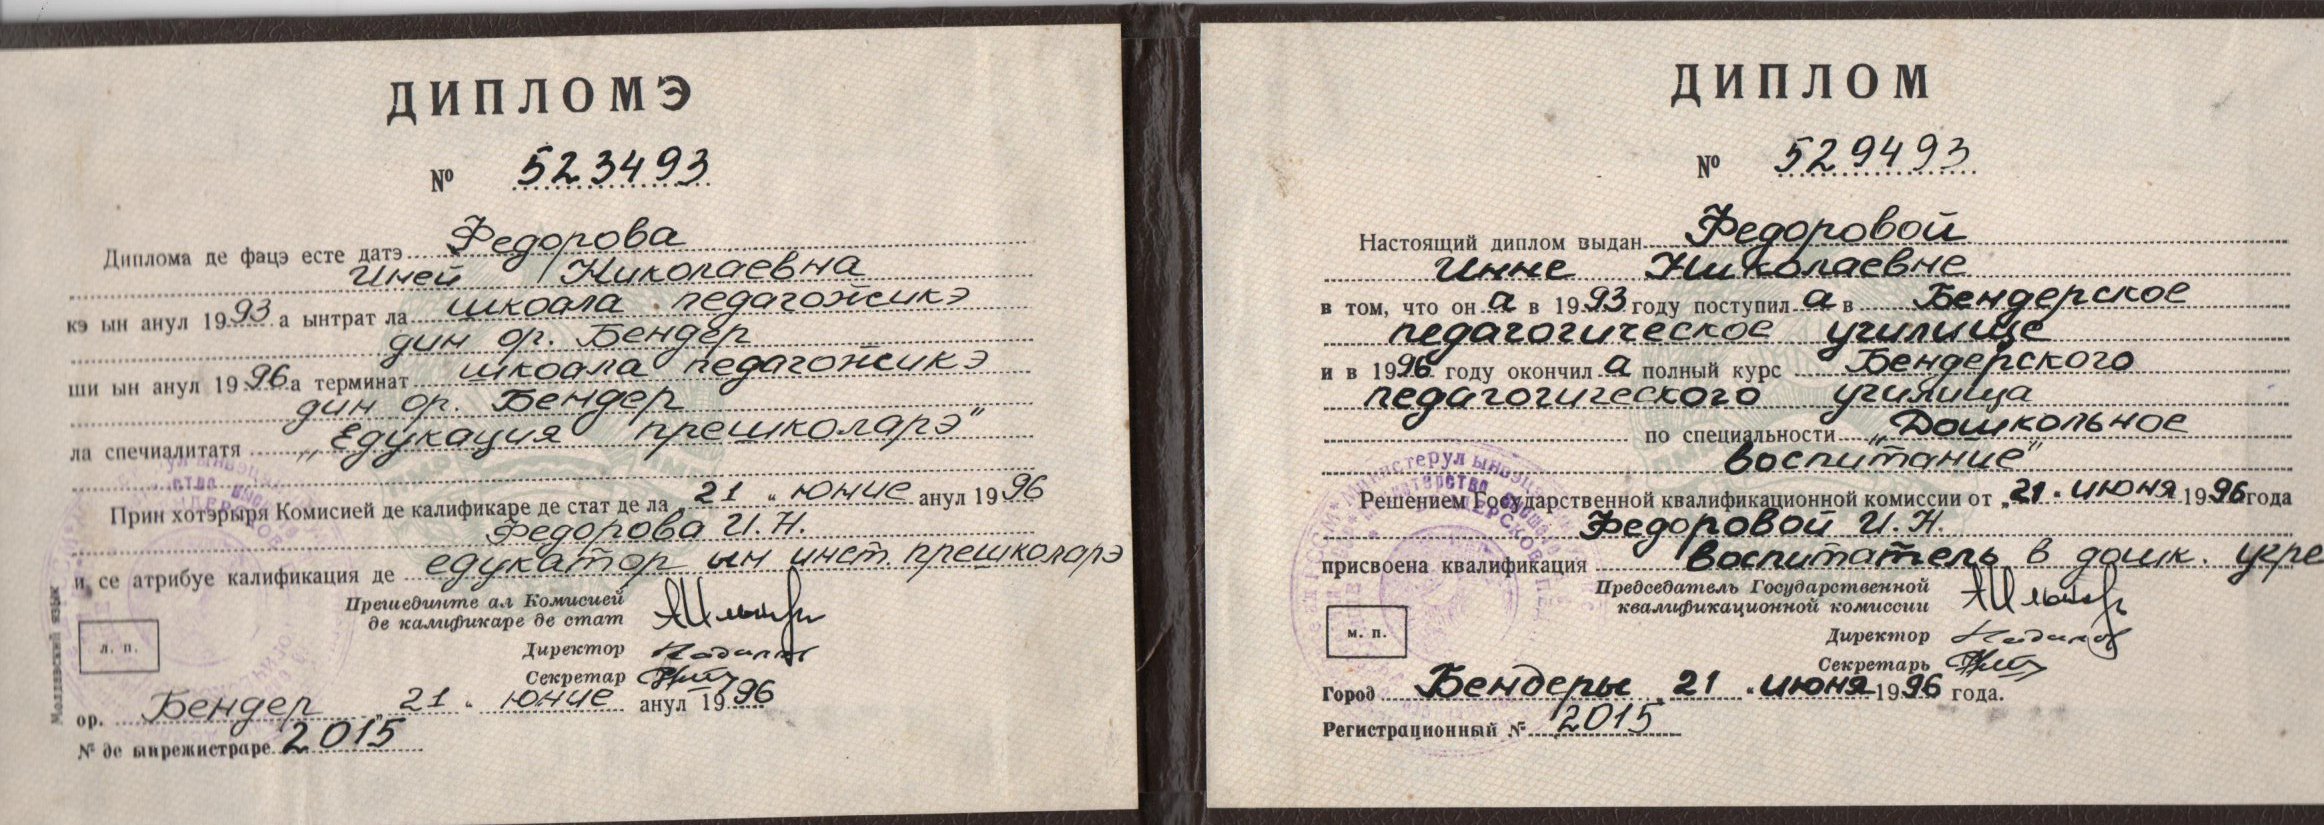 ДИПЛОМЭ
№ 523493
Диплома де фацэ есте датэ Федорова
Иней Николаевна
кэ ын анул 1993 а ынтрат ла школа педагожикэ
дин ор. Бендер
ши ын анул 1996 а терминат школа педагожикэ
дин ор. Бендер
ла спечиалитатя „Едукация прешколарэ"
Прин хотэрыря Комисией де калификаре де стат де ла „21" юние анул 1996
Федорова И. Н.
и се атрибуе калификация де едукатор ын инст. прешколарэ
Прешединте ал Комисией
де калификаре де стат
Директор
Секретар
л. п.
ор. Бендер „21" юние анул 1996
№ де ынрежистраре 2015
Молдавский язык
ДИПЛОМ
№ 529493
Настоящий диплом выдан Федоровой
Инне Николаевне
в том, что он а в 1993 году поступил а в Бендерское
педагогическое училище
и в 1996 году окончил а полный курс Бендерского
педагогического училища
по специальности „Дошкольное
воспитание"
Решением Государственной квалификационной комиссии от „21" июня 1996 года
Федоровой И. Н.
присвоена квалификация воспитатель в дошк. учре
Председатель Государственной
квалификационной комиссии
Директор
Секретарь
м. п.
Город Бендеры „21" июня 1996 года.
Регистрационный № 2015